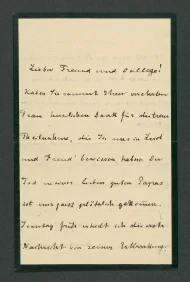 Lieber Freund und College!
Haben Sie sammt Ihrer verehrten
Frau herzlichen Dank für die treue
Theilnahme, die Sie uns in Leid
und Freud' bewiesen haben. Der
Tod meines lieben guten Papas
ist uns ganz plötzlich gekommen.
früh erhielt ich die erste
Nachricht von seiner Erkrankung,